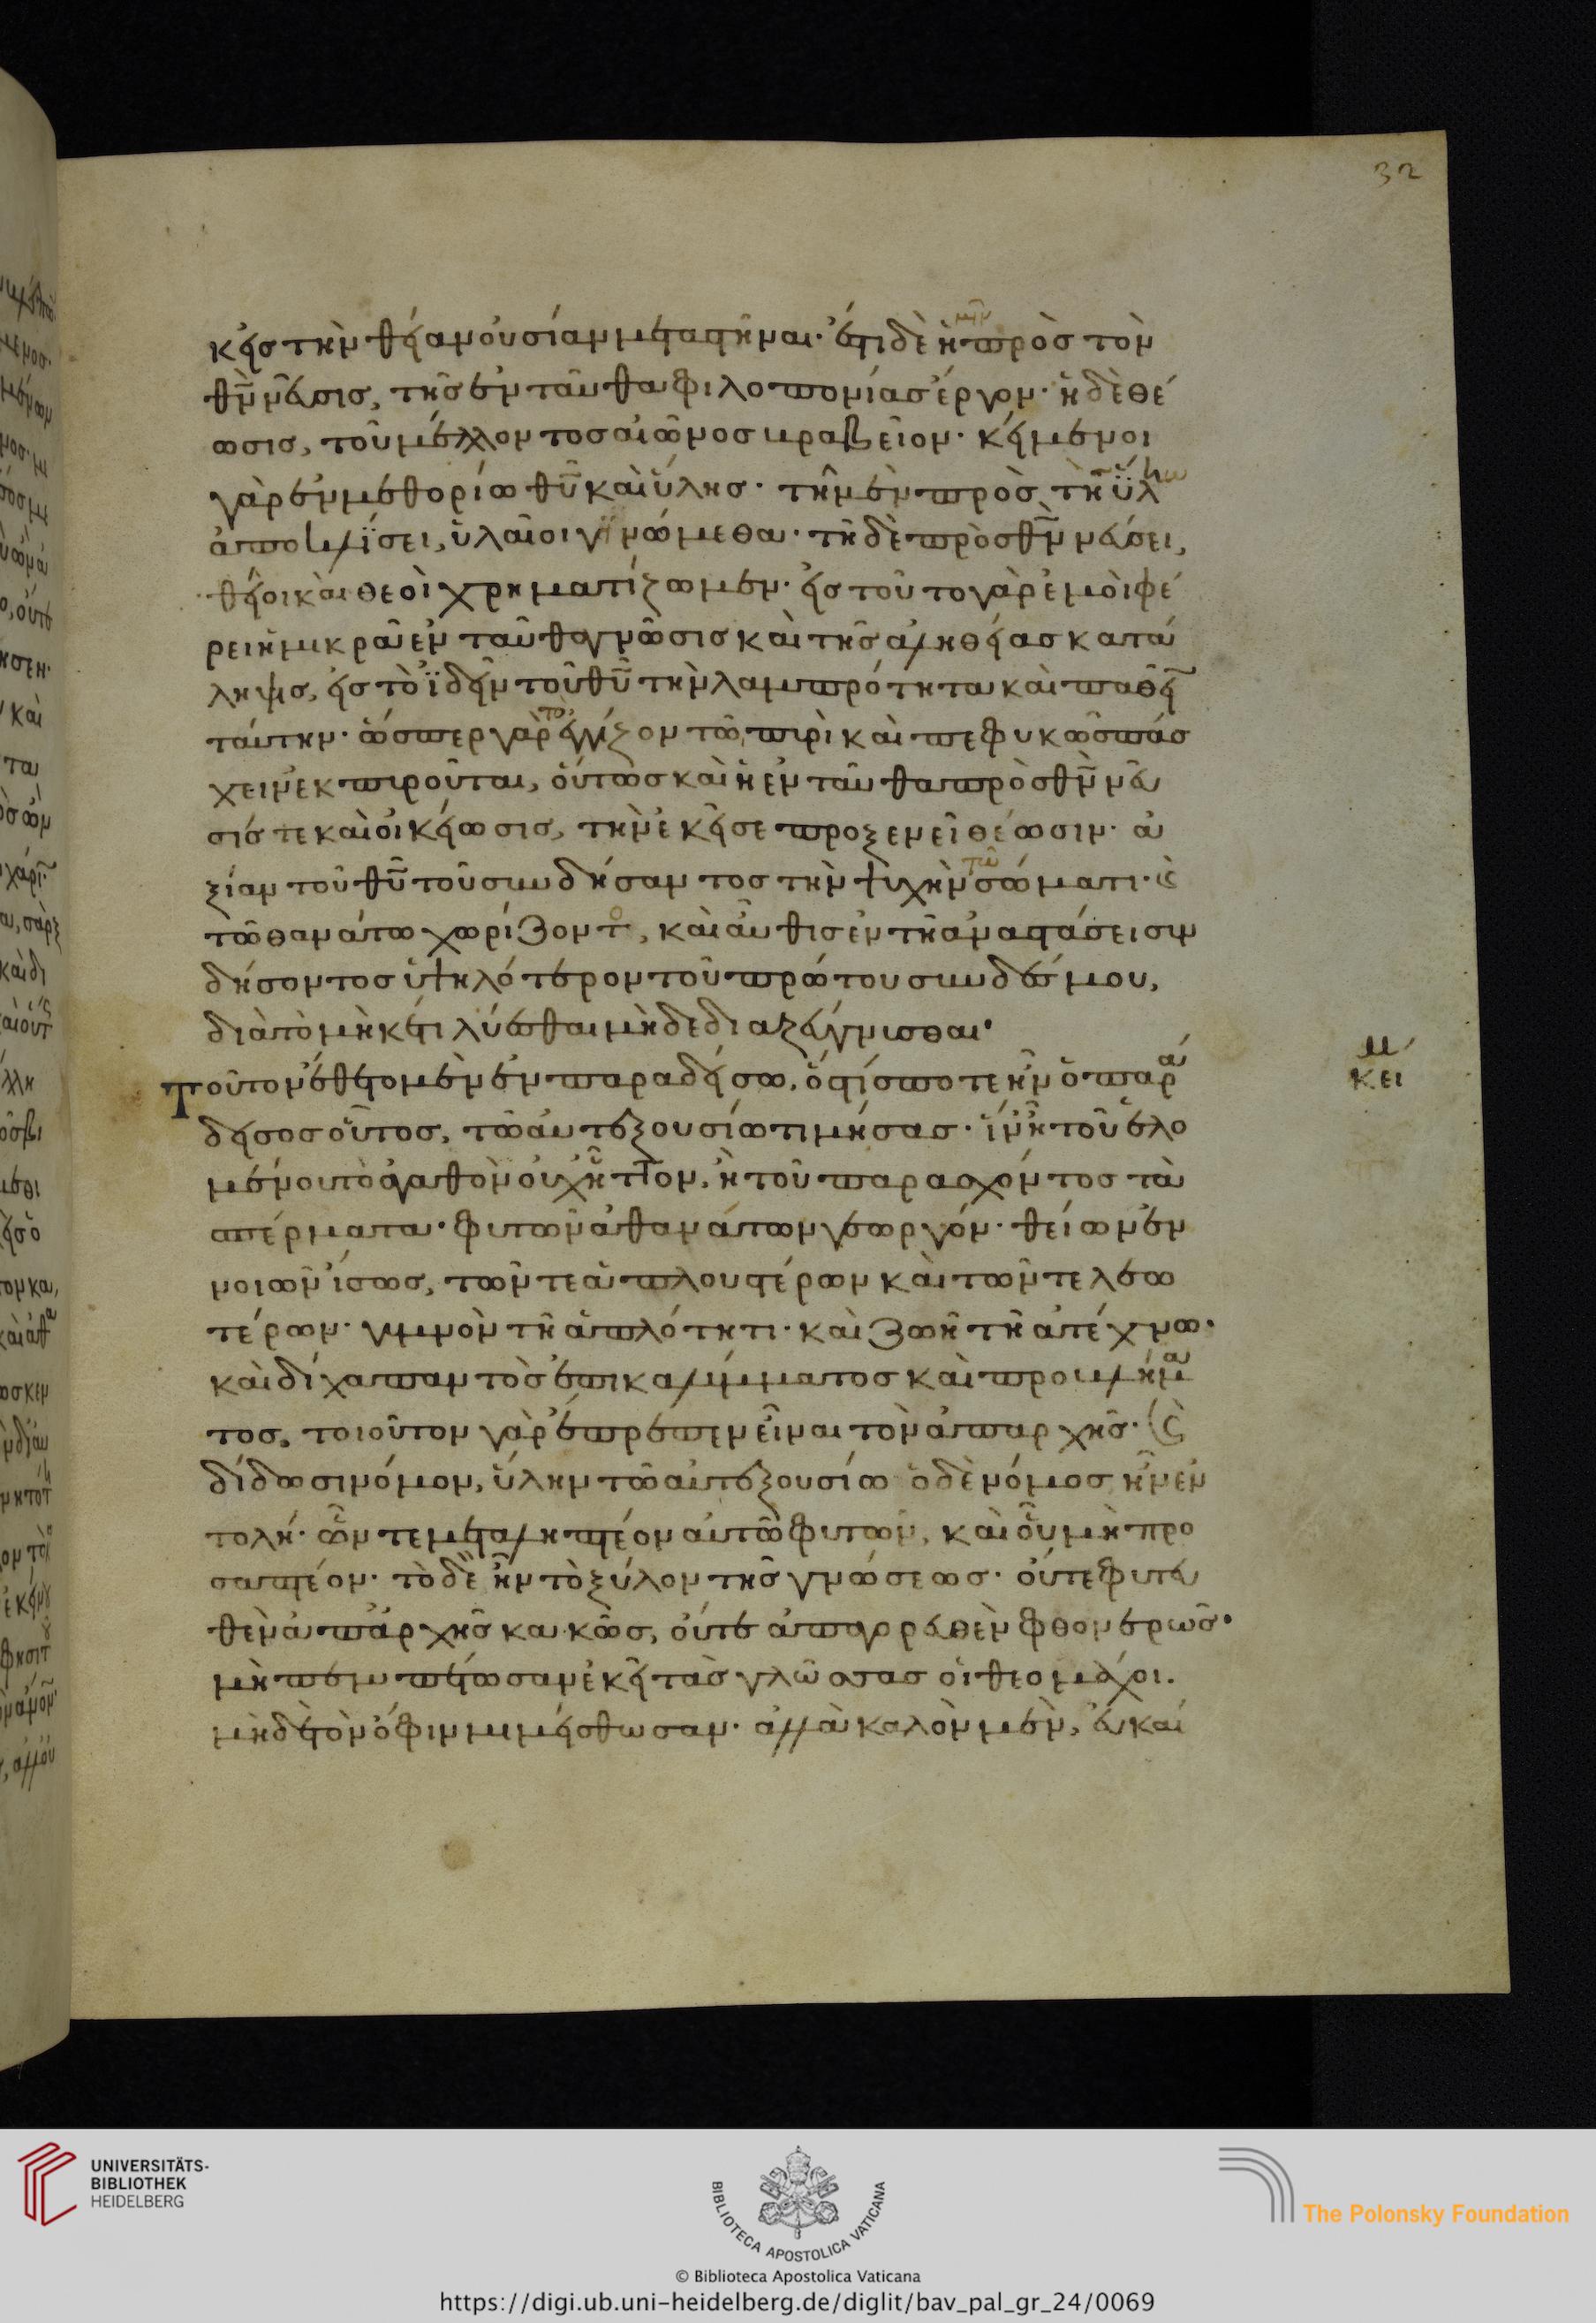 κεῖσ τὴν θείαν οὐσίαν μεταστῆναι· ἔτι δὲ ἡ μὲν πρὸσ τὸν
θν̅ νεῦσισ, τῆσ ἐνταῦθα φιλοπονίασ ἔργον· ἡ δὲ θέ
ωσισ, τοῦ μέλλοντοσ αἰῶνοσ βραβεῖον· κείμενοι
γὰρ ἐν μεθορίω θυ̅ καὶ ὕλησ· τῆ μὲν πρὸσ τὴν ὕλην
ἀποκλίσει, ὑλαῖοι γινώμεθα· τῆ δὲ πρὸσ θν̅ νεύσει,
θεῖοι καὶ θεοὶ χρηματίζωμεν· εἰσ τοῦτο γὰρ ἐμοὶ φέ
ρει ἡ μικρὰ ἐνταῦθα γνῶσισ καὶ τῆσ ἀληθείασ κατά
ληψισ, εἰσ τὸ ἰδεῖν τοῦ θυ̅ τὴν λαμπρότητα καὶ παθεῖν
ταύτην· ὥσπερ γὰρ τὸ ἐγγίζον τῶ πυρὶ καὶ πεφυκὸσ πάσ
χειν ἐκπυροῦται, οὕτωσ καὶ ἡ ἐνταῦθα πρὸσ θν̅ νεῦ
σίσ τε καὶ οἰκείωσισ, τὴν ἐκεῖσε προξενεῖ θέωσιν· ἀ
ξίαν τοῦ θυ̅ τοῦ συνδήσαντοσ τὴν ψυχὴν τῶ σώματι· ϗ
τῶ θανάτω χωρίζοντοσ, καὶ αὖθισ ἐν τῆ ἀναστάσει συν
δήσοντοσ ὑψηλότερον τοῦ πρώτου συνδέσμου,
διὰ τὸ μηκέτι λύεσθαι μηδὲ διαζεύγνυσθαι·
Τοῦτον ἔθετο μὲν ἐν παραδείσω, ὁστίσποτε ἦν ὁ παρά
δεισοσ οὗτοσ, τῶ αὐτεξουσίω τιμήσασ· ἵν' ἦ τοῦ ἑλο
μένου τὸ ἀγαθὸν οὐχ ἧττον, ἢ τοῦ παρασχόντοσ τὰ
σπέρματα· φυτῶν ἀθανάτων γεωργόν· θείων ἐν
νοιῶν ἴσωσ, τῶν τε ἁπλουστέρων καὶ τῶν τελεω
τέρων· γυμνὸν τῆ ἁπλότητι· καὶ ζωῆ τῆ ἀτέχνω·
καὶ δίχα παντὸσ ἐπικαλύμματοσ καὶ προβλήμα
τοσ, τοιοῦτον γὰρ ἔπρεπεν εἶναι τὸν ἀπαρχῆσ· ϗ
δίδωσι νόμον, ὕλην τῶ αὐτεξουσίω ὁ δὲ νόμοσ ἦν ἐν
τολή· ὧν τε μεταληπτέον αὐτῶ φυτῶν, καὶ οὗ μὴ προ
σαπτέον· τὸ δὲ ἦν τὸ ξύλον τῆσ γνώσεωσ· οὔτε φυτευ
θὲν ἀπαρχῆσ κακῶσ, οὔτε ἀπαγορευθὲν φθονερῶσ·
μὴ πεμπέτωσαν ἐκεῖ τὰσ γλώσσασ οἱ θεομάχοι.
μὴδὲ τὸν ὄφιν μιμείσθωσαν· ἀλλὰ καλὸν μὲν, εὐκαί
32
κει
UNIVERSITÄTS-
BIBLIOTHEK
HEIDELBERG
BIBLIOTECA APOSTOLICA VATICANA
© Biblioteca Apostolica Vaticana
The Polonsky Foundation
https://digi.ub.uni-heidelberg.de/diglit/bav_pal_gr_24/0069